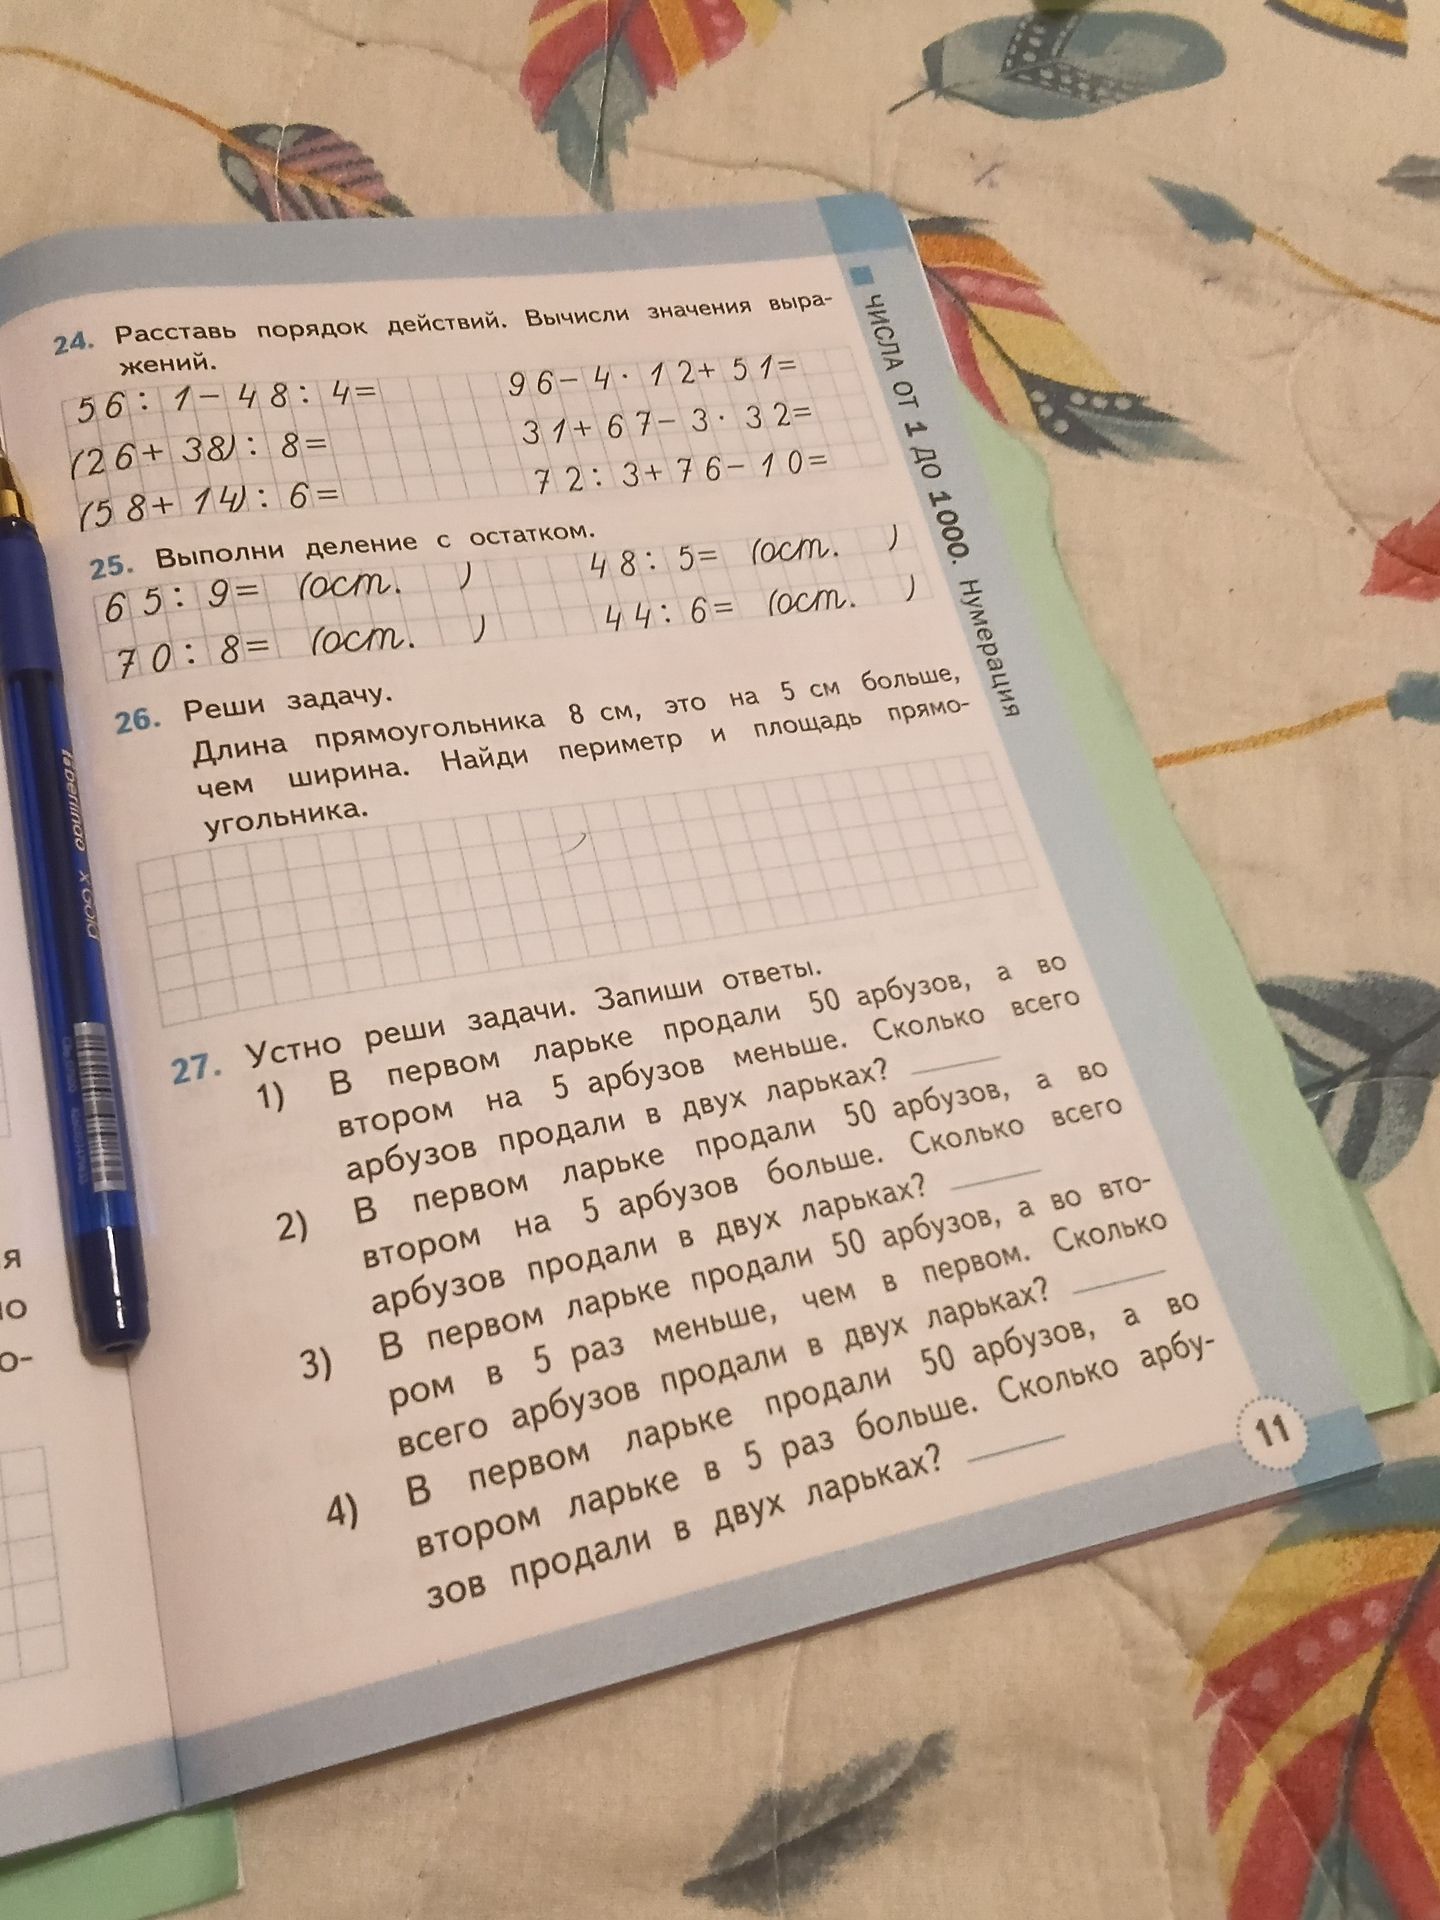 24. Расставь порядок действий. Вычисли значения выра-
жений.
56: 1- 48: 4=
96- 4· 12+ 51=
(26+ 38): 8=
31+ 67- 3· 32=
(58+ 14): 6=
72: 3+76- 10=
25. Выполни деление с остатком.
65: 9= (ост. )
48: 5= (ост. )
70: 8= (ост. )
44: 6= (ост. )
26. Реши задачу.
Длина прямоугольника 8 см, это на 5 см больше,
чем ширина. Найди периметр и площадь прямо-
угольника.
27. Устно реши задачи. Запиши ответы.
1) В первом ларьке продали 50 арбузов, а во
втором на 5 арбузов меньше. Сколько всего
арбузов продали в двух ларьках?
2) В первом ларьке продали 50 арбузов, а во
втором на 5 арбузов больше. Сколько всего
арбузов продали в двух ларьках?
3) В первом ларьке продали 50 арбузов, а во вто-
ром в 5 раз меньше, чем в первом. Сколько
всего арбузов продали в двух ларьках?
4) В первом ларьке продали 50 арбузов, а во
втором ларьке в 5 раз больше. Сколько арбу-
зов продали в двух ларьках?
11
ЧИСЛА ОТ 1 ДО 1000. Нумерация
berlingo xGold
я
ю
о-